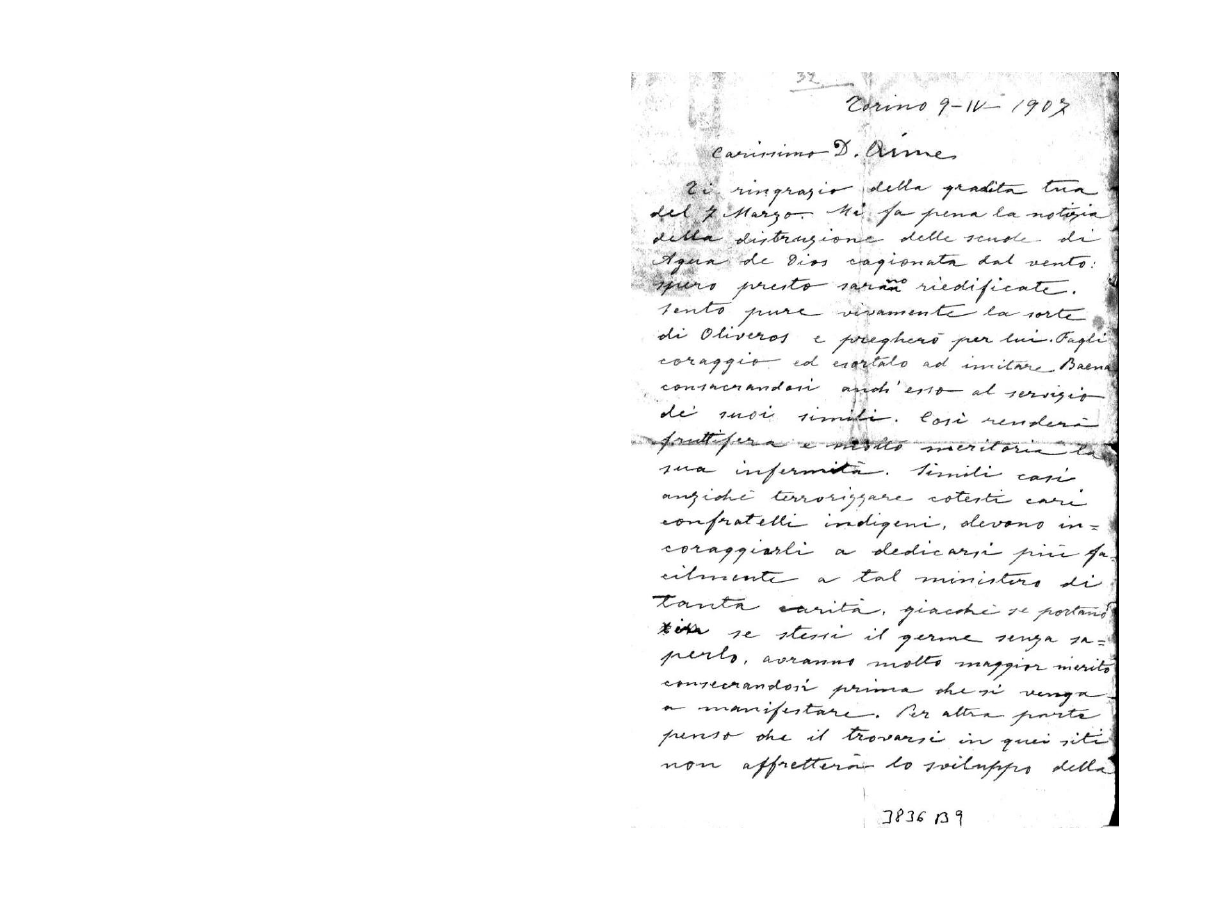 32
Torino 9-IV- 1907
Carissimo D. Aime
Ti ringrazio della gradita tua
del 7 Marzo. Mi fa pena la notizia
della distruzione delle scuole di
Agua de Dios cagionata dal vento:
spero presto saranno riedificate.
Sento pure vivamente la sorte
di Oliveros e pregherò per lui. Fagli
coraggio ed esortalo ad imitare Baena
consacrandosi anch'esso al servizio
dei suoi simili. Così renderà
fruttifera e molto meritoria la
sua infermità. Simili casi
anzichè terrorizzare cotesti cari
confratelli indigeni, devono in=
coraggiarli a dedicarsi più fa-
cilmente a tal ministero di
tanta carità, giacchè se portano
se stessi il germe senza sa=
perlo, avranno molto maggior merito
consecrandosi prima che si venga
a manifestare. Per altra parte
penso che il trovarsi in quei siti
non affretterà lo sviluppo della
3836 B 9